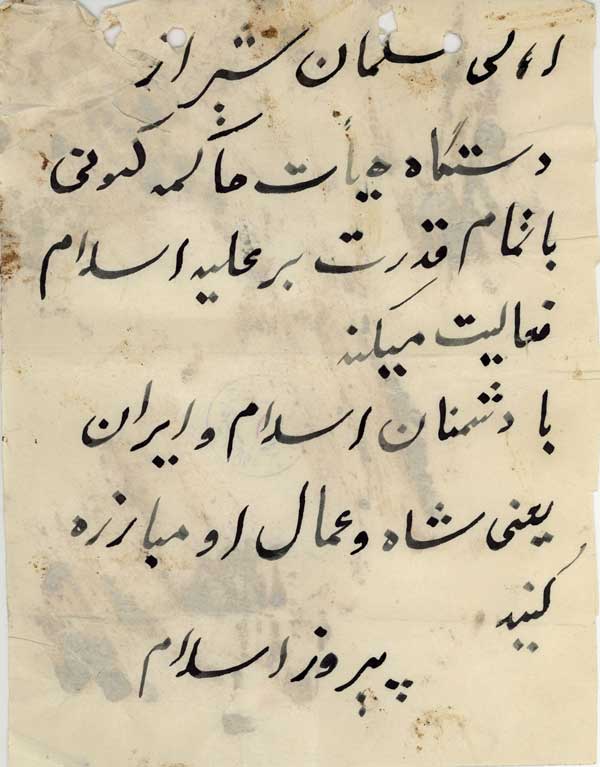 اهالی مسلمان شیراز
دستگاه هیأت حاکمه کنونی
با تمام قدرت بر علیه اسلام
فعالیت میکند
با دشمنان اسلام و ایران
یعنی شاه و عمال او مبارزه
کنید
پیروز اسلام